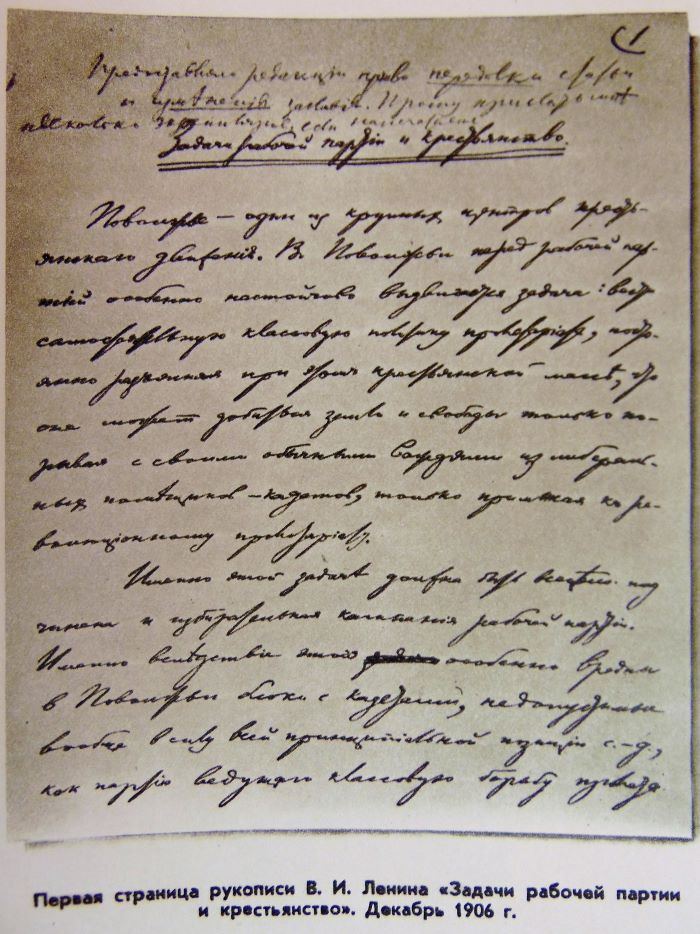 1
Предоставляю редакции право передовки
и
несколько
Задачи рабочей партіи и крестьянство.
Поволжье — один из крупных центров кресть-
янскаго движенія. В Поволжьи перед рабочей пар-
тіей особенно настойчиво выдвигается задача: вести
самостоятельную классовую политику пролетаріата, посто-
янно разъясняя при этом крестьянской массѣ, что
она может добиться земли и свободы только по-
рывая с своими обычными вождями из либераль-
ных помѣщиков — кадетов, только примыкая к ре-
волюціонному пролетаріату.
Именно этой задачѣ должна быть всецѣло под
чинена и избирательная кампанія рабочей партіи.
Именно вслѣдствіе этого особенно вредны
в Поволжьи блоки с кадетами, недопустимые
вообще в силу всей принципіальной позиціи с.-д.,
как партію ведущую классовую борьбу пролета
Первая страница рукописи В. И. Ленина «Задачи рабочей партии
и крестьянство». Декабрь 1906 г.